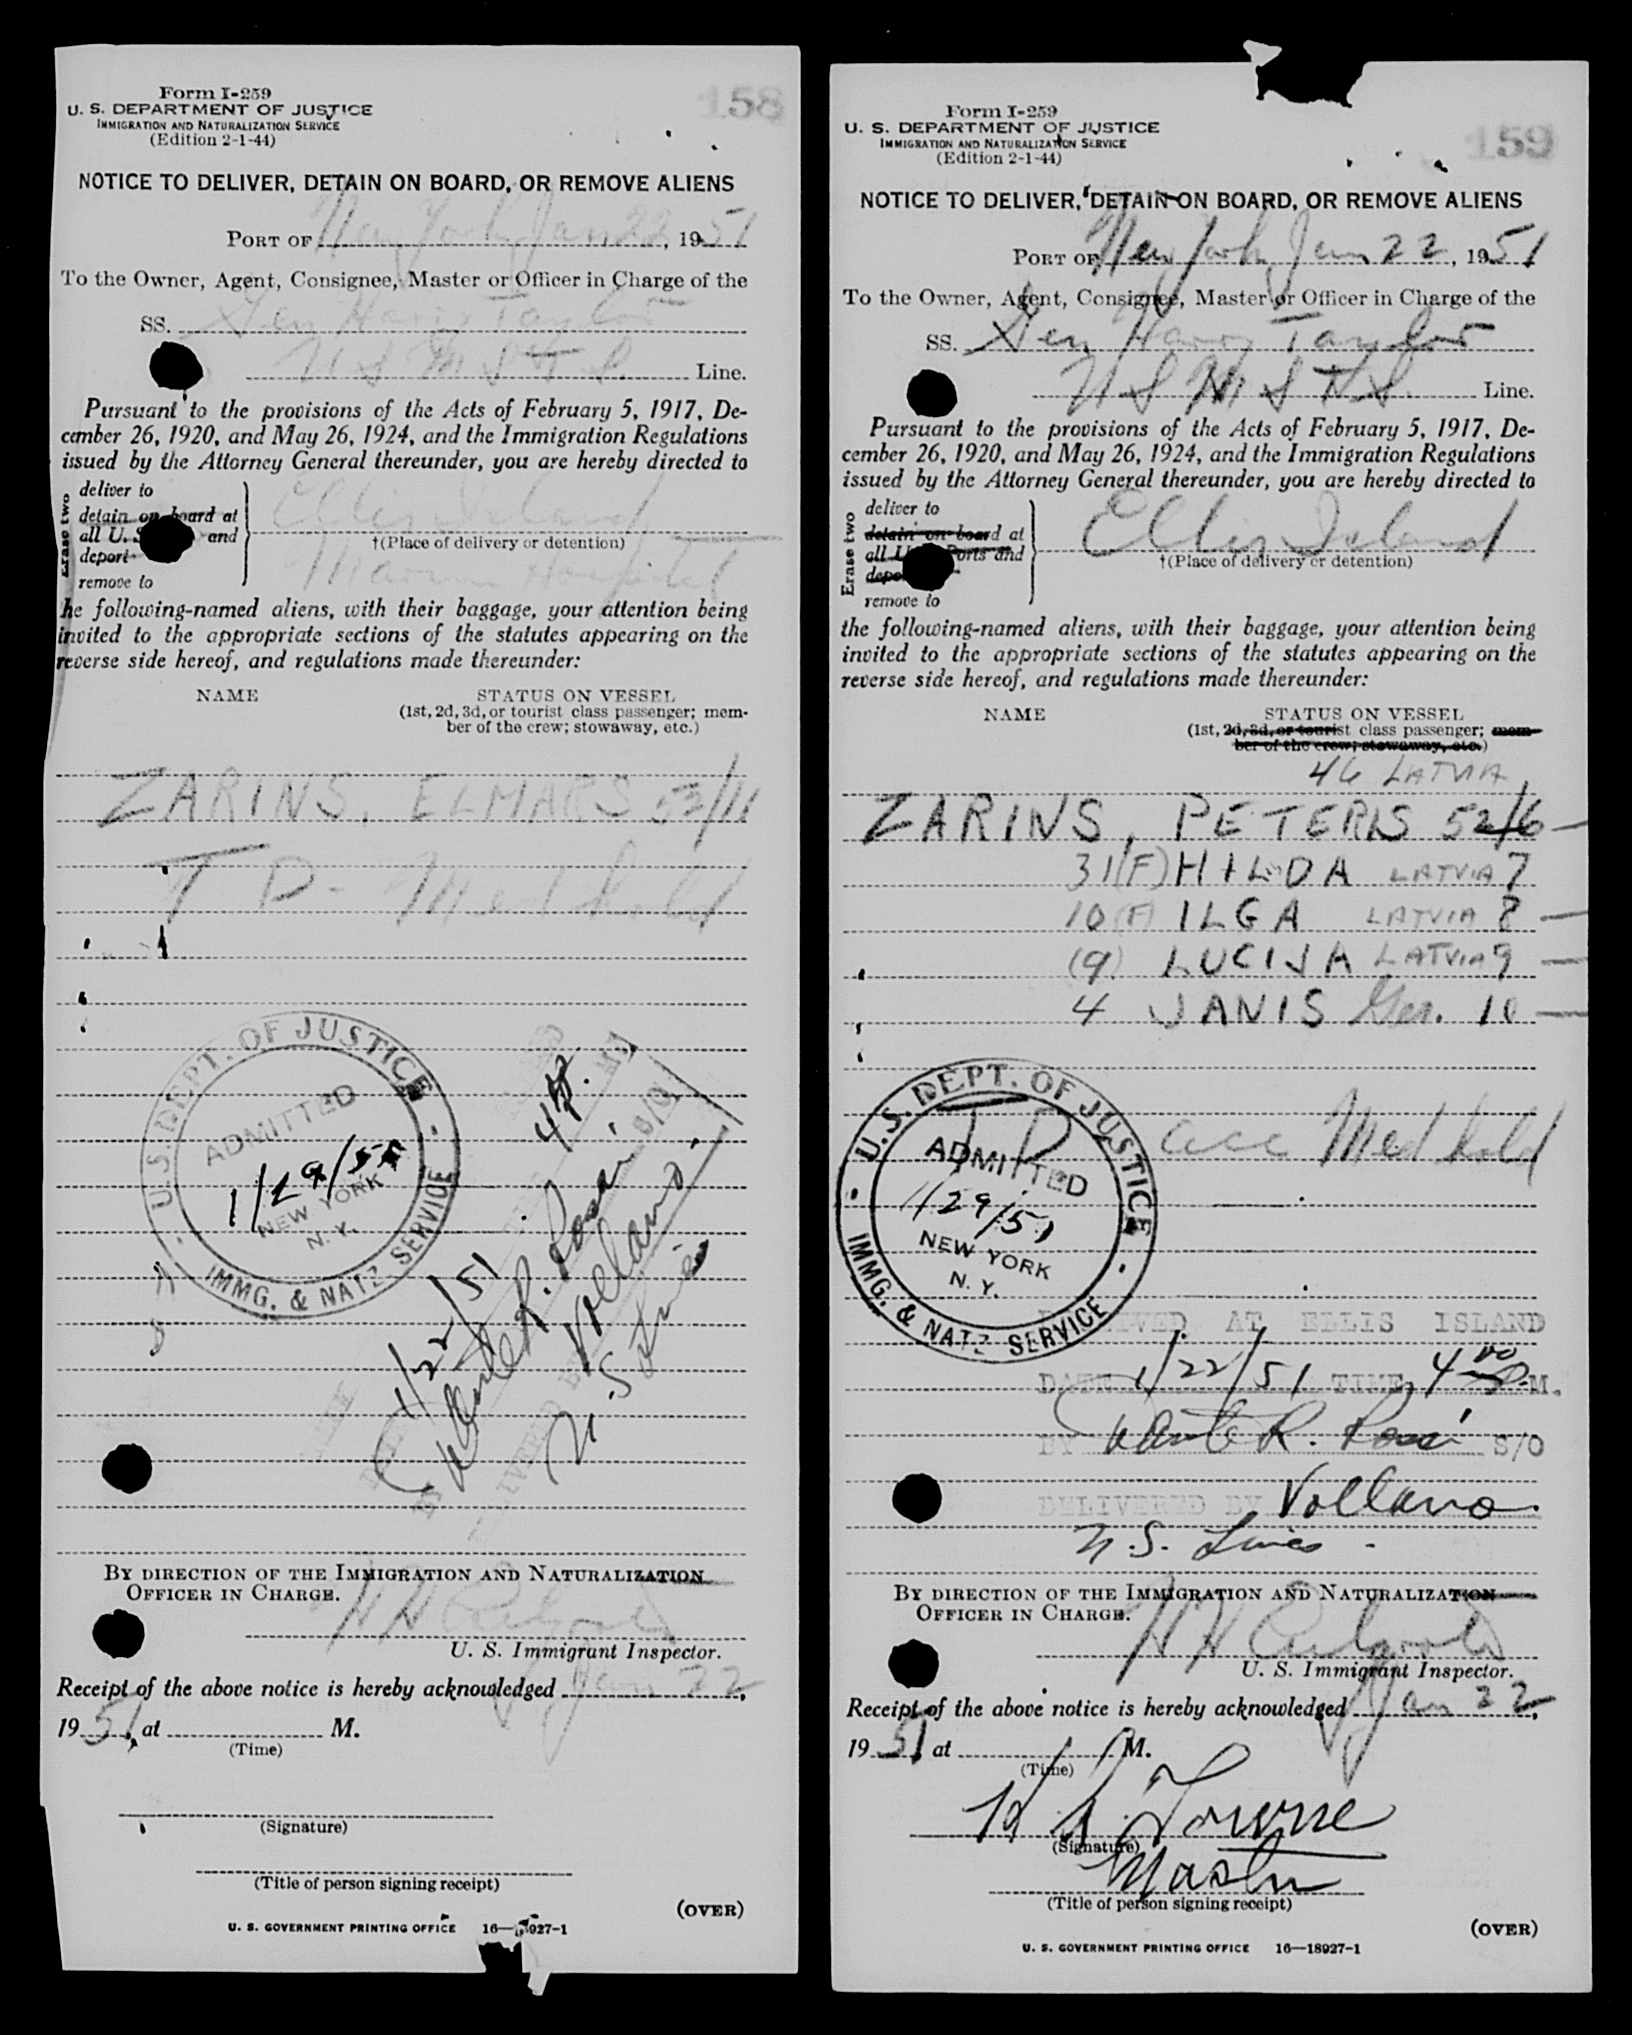 158
Form I-259
U. S. DEPARTMENT OF JUSTICE
IMMIGRATION AND NATURALIZATION SERVICE
(Edition 2-1-44)
NOTICE TO DELIVER, DETAIN ON BOARD, OR REMOVE ALIENS
PORT OF New York Jan 22, 1951
To the Owner, Agent, Consignee, Master or Officer in Charge of the
SS. Gen Harry Taylor
Line.
Pursuant to the provisions of the Acts of February 5, 1917, De-
cember 26, 1920, and May 26, 1924, and the Immigration Regulations
issued by the Attorney General thereunder, you are hereby directed to
Erase two
deliver to
detain on board at
all U. S. and
deport
remove to
Ellis Island
†(Place of delivery or detention)
Marine Hospital
he following-named aliens, with their baggage, your attention being
invited to the appropriate sections of the statutes appearing on the
reverse side hereof, and regulations made thereunder:
NAME
STATUS ON VESSEL
(1st, 2d, 3d, or tourist class passenger; mem-
ber of the crew; stowaway, etc.)
ZARINS, ELMARS 53/11
T D - Med hold
U.S. DEPT. OF JUSTICE
ADMITTED
1/29/51
NEW YORK
N. Y.
IMMG. & NATZ SERVICE
1/22/51
Dante R. Rossi S/O
Vollano
U.S. Lines
BY DIRECTION OF THE IMMIGRATION AND NATURALIZATION
OFFICER IN CHARGE.
U. S. Immigrant Inspector.
Receipt of the above notice is hereby acknowledged Jan 22,
1951, at M.
(Time)
(Signature)
(Title of person signing receipt)
(OVER)
U. S. GOVERNMENT PRINTING OFFICE 16—18927-1
159
Form I-259
U. S. DEPARTMENT OF JUSTICE
IMMIGRATION AND NATURALIZATION SERVICE
(Edition 2-1-44)
NOTICE TO DELIVER, DETAIN ON BOARD, OR REMOVE ALIENS
PORT OF New York Jan 22, 1951
To the Owner, Agent, Consignee, Master or Officer in Charge of the
SS. Gen Harry Taylor
Line.
Pursuant to the provisions of the Acts of February 5, 1917, De-
cember 26, 1920, and May 26, 1924, and the Immigration Regulations
issued by the Attorney General thereunder, you are hereby directed to
Erase two
deliver to
detain on board at
all U. S. Ports and
deport
remove to
Ellis Island
†(Place of delivery or detention)
the following-named aliens, with their baggage, your attention being
invited to the appropriate sections of the statutes appearing on the
reverse side hereof, and regulations made thereunder:
NAME
STATUS ON VESSEL
(1st, 2d, 3d, or tourist class passenger; mem-
ber of the crew; stowaway, etc.)
46 LATVIA
ZARINS, PETERIS 52/6
31 (F) HILDA LATVIA 7
10 (F) ILGA LATVIA 8
(9) LUCIJA LATVIA 9
4 JANIS Ger. 10
T D acc Med hold
U.S. DEPT. OF JUSTICE
ADMITTED
1/29/51
NEW YORK
N. Y.
IMMG. & NATZ SERVICE
RECEIVED AT ELLIS ISLAND
DATE 1/22/51 TIME 4 00 P.M.
BY Dante R. Rossi S/O
DELIVERED BY Vollano
U.S. Lines
BY DIRECTION OF THE IMMIGRATION AND NATURALIZATION
OFFICER IN CHARGE.
U. S. Immigrant Inspector.
Receipt of the above notice is hereby acknowledged Jan 22,
1951, at M.
(Time)
Towne
(Signature)
Master
(Title of person signing receipt)
(OVER)
U. S. GOVERNMENT PRINTING OFFICE 16—18927-1